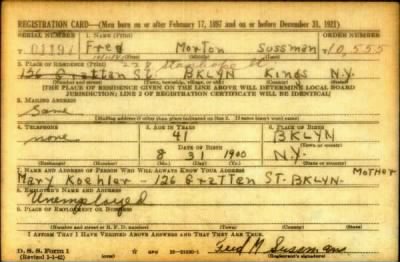 REGISTRATION CARD—(Men born on or after February 17, 1897 and on or before December 31, 1921)
SERIAL NUMBER 1. NAME (Print) ORDER NUMBER
Fred Morton Sussman 10,555
(First) (Middle) (Last)
2. PLACE OF RESIDENCE (Print)
126 Gratten St. BKLYN Kings N.Y.
(Number and street) (Town, township, village, or city) (County) (State)
[THE PLACE OF RESIDENCE GIVEN ON THE LINE ABOVE WILL DETERMINE LOCAL BOARD
JURISDICTION; LINE 2 OF REGISTRATION CERTIFICATE WILL BE IDENTICAL]
3. MAILING ADDRESS
Same
[Mailing address if other than place indicated on line 2. If same insert word same]
4. TELEPHONE 5. AGE IN YEARS 6. PLACE OF BIRTH
none 41 BKLYN
(Town or county)
DATE OF BIRTH
8 31 1900 N.Y.
(Exchange) (Number) (Mo.) (Day) (Yr.) (State or country)
7. NAME AND ADDRESS OF PERSON WHO WILL ALWAYS KNOW YOUR ADDRESS Mother
Mary Koehler - 126 Gratten St. BKLYN.
8. EMPLOYER'S NAME AND ADDRESS
Unemployed
9. PLACE OF EMPLOYMENT OR BUSINESS
(Number and street or R. F. D. number) (Town) (County) (State)
I AFFIRM THAT I HAVE VERIFIED ABOVE ANSWERS AND THAT THEY ARE TRUE.
D. S. S. Form 1 GPO Fred M Sussman
(Revised 1-1-42) (Registrant's signature)